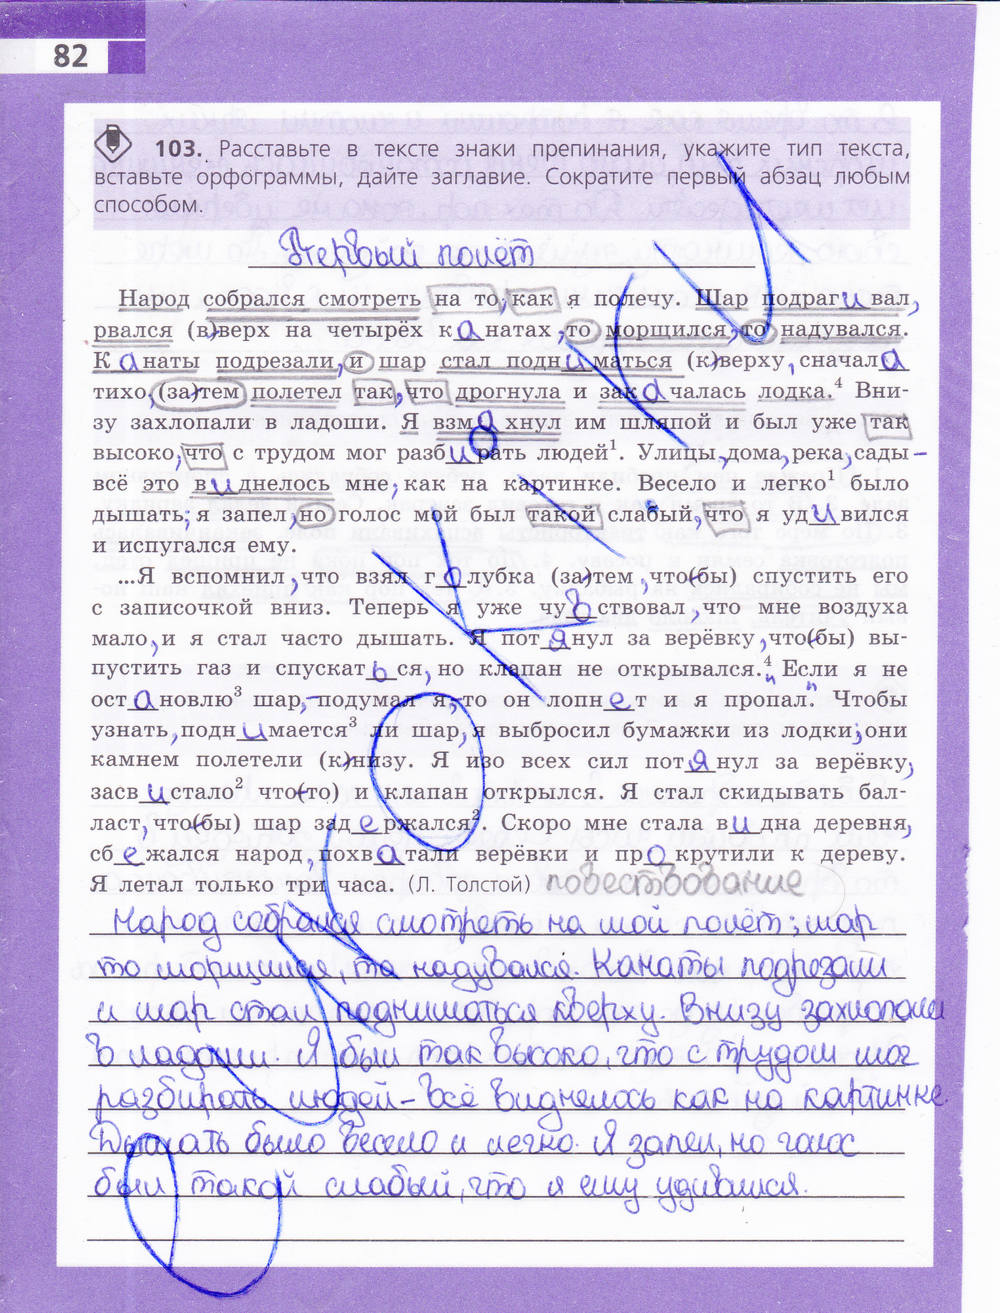 82
103. Расставьте в тексте знаки препинания, укажите тип текста,
вставьте орфограммы, дайте заглавие. Сократите первый абзац любым
способом.
Первый полёт
Народ собрался смотреть на то, как я полечу. Шар подрагивал,
рвался (в)верх на четырёх канатах, то морщился, то надувался.
Канаты подрезали, и шар стал подниматься (к)верху, сначала
тихо, (за)тем полетел так, что дрогнула и закачалась лодка.⁴ Вни-
зу захлопали в ладоши. Я взмахнул им шляпой и был уже так
высоко, что с трудом мог разбирать людей¹. Улицы, дома, река, сады –
всё это виднелось мне, как на картинке. Весело и легко¹ было
дышать; я запел, но голос мой был такой слабый, что я удивился
и испугался ему.
...Я вспомнил, что взял голубка (за)тем, что(бы) спустить его
с записочкой вниз. Теперь я уже чувствовал, что мне воздуха
мало, и я стал часто дышать. Я потянул за верёвку, что(бы) вы-
пустить газ и спускаться, но клапан не открывался.⁴ "Если я не
остановлю³ шар, – подумал я, – то он лопнет и я пропал". Чтобы
узнать, поднимается³ ли шар, я выбросил бумажки из лодки; они
камнем полетели (к)низу. Я изо всех сил потянул за верёвку,
засвистало² что(то) и клапан открылся. Я стал скидывать бал-
ласт, что(бы) шар задержался². Скоро мне стала видна деревня,
сбежался народ, похватали верёвки и прокрутили к дереву.
Я летал только три часа. (Л. Толстой) повествование
Народ собрался смотреть на мой полёт; шар
то морщился, то надувался. Канаты подрезали
и шар стал подниматься кверху. Внизу захлопали
в ладоши. Я был так высоко, что с трудом мог
разбирать людей – всё виднелось как на картинке.
Дышать было весело и легко. Я запел, но голос
был такой слабый, что я ему удивился.